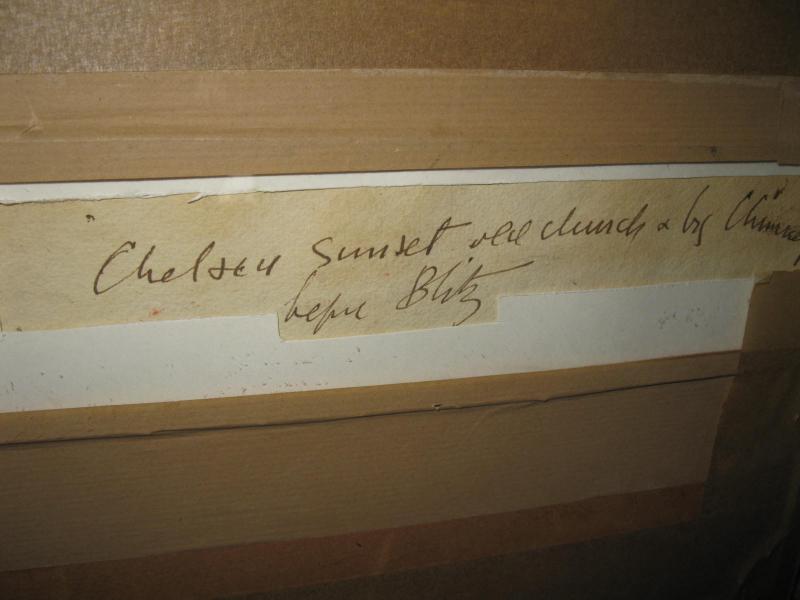 "Chelsea sunset old church & by Chimney"
before Blitz